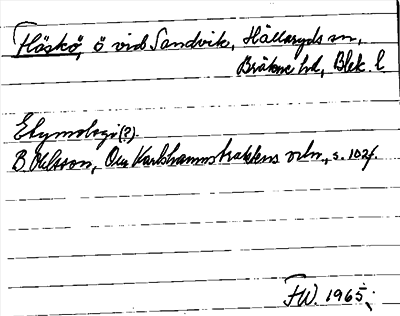 Flåskö, ö vid Sandvik, Hällaryds sn,
Bräkne hd, Blek. l.
Etymologi(?).
B. Ohlsson, Om Karlshamnstraktens odn., s. 102f.
FW. 1965.